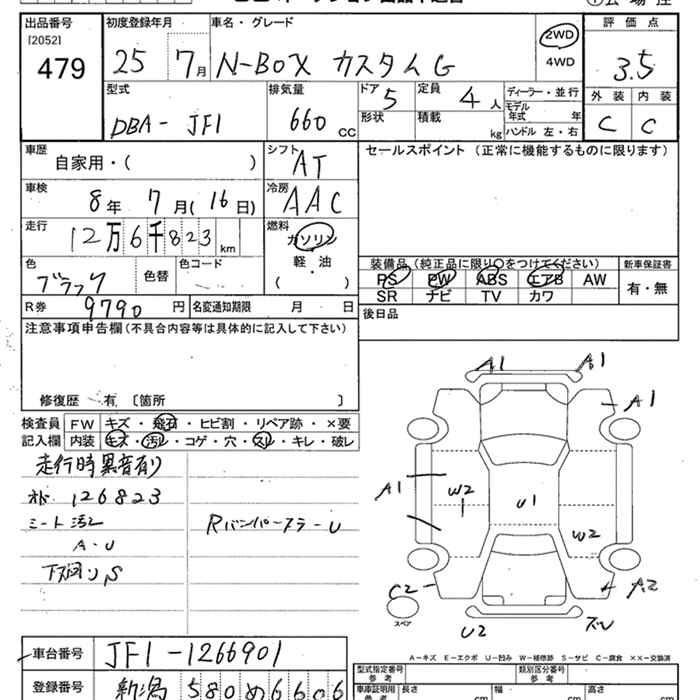 出品番号
[2052]
479
初度登録年月
25 7月
車名・グレード
N-BOX カスタムG
2WD
4WD
評価点
3.5
外装 内装
C C
型式
DBA- JF1
排気量
660 CC
ドア 5
形状
定員 4人
積載 kg
ディーラー・並行
モデル
年式 年
ハンドル 左・右
車歴
自家用・( )
シフト
AT
セールスポイント (正常に機能するものに限ります)
車検
8年 7月(16日)
冷房
AAC
走行
12万6千823km
燃料
ガソリン
軽・油
( )
色
ブラック
色替
色コード
装備品 (純正品に限り○をつけてください)
PS PW ABS エアB AW
SR ナビ TV カワ
新車保証書
有・無
R券 9790円
名変通知期限 月 日
後日品
注意事項申告欄(不具合内容等は具体的に記入して下さい)
修復歴 有 〔箇所 〕
検査員 FW キズ・飛石・ヒビ割・リペア跡・×要
記入欄 内装 キズ・汚レ・コゲ・穴・スレ・キレ・破レ
走行時異音有り
126823
シート汚レ
A・U
下廻りS
Rバンパーステ-U
A1
A1
A1
A1
W2
U1
W2
A2
C2
スペア
U2
ズレ
A-キズ E-エクボ U-凹み W-補修跡 S-サビ C-腐食 ××-交換済
車台番号 JF1-1266901
登録番号 新潟 580 め 6606
型式指定番号
参考
類別区分番号
参考
車庫証明用
参考
長さ cm
幅 cm
高さ cm